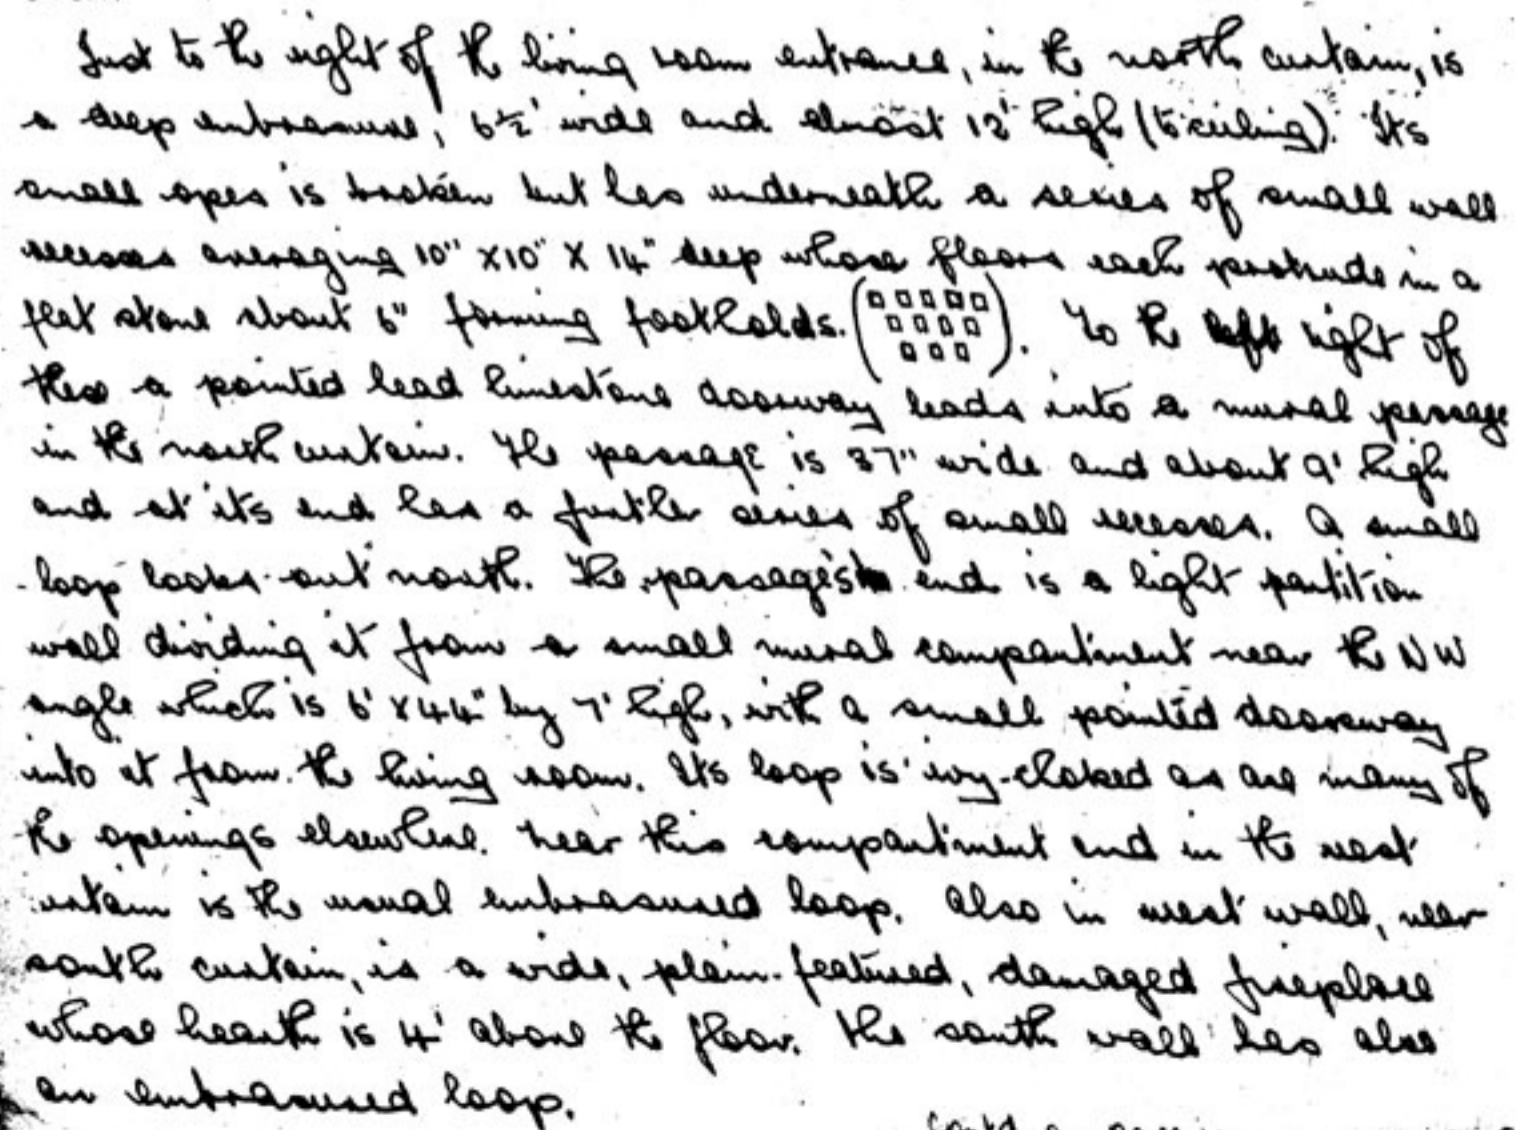 Just to the right of the living room entrance, in the north curtain, is
a deep embrasure, 6½' wide and almost 12' high (to ceiling). Its
small opes is broken but has underneath a series of small wall
recesses averaging 10" x 10" x 14" deep whose floors each protrude in a
flat stone about 6" forming footholds. ( ). To the left right of
these a pointed head limestone doorway leads into a mural passage
in the north curtain. The passage is 37" wide and about 9' high
and at its end has a further series of small recesses. A small
loop looks out north. The passage's end is a light partition
wall dividing it from a small mural compartment near the NW
angle which is 6' x 44" by 7' high, with a small pointed doorway
into it from the living room. Its loop is ivy-choked as are many of
the openings elsewhere. Near this compartment and in the west
curtain is the usual embrasured loop. Also in west wall, near
south curtain, is a wide, plain-featured, damaged fireplace
whose hearth is 4' above the floor. The south wall has also
an embrasured loop.